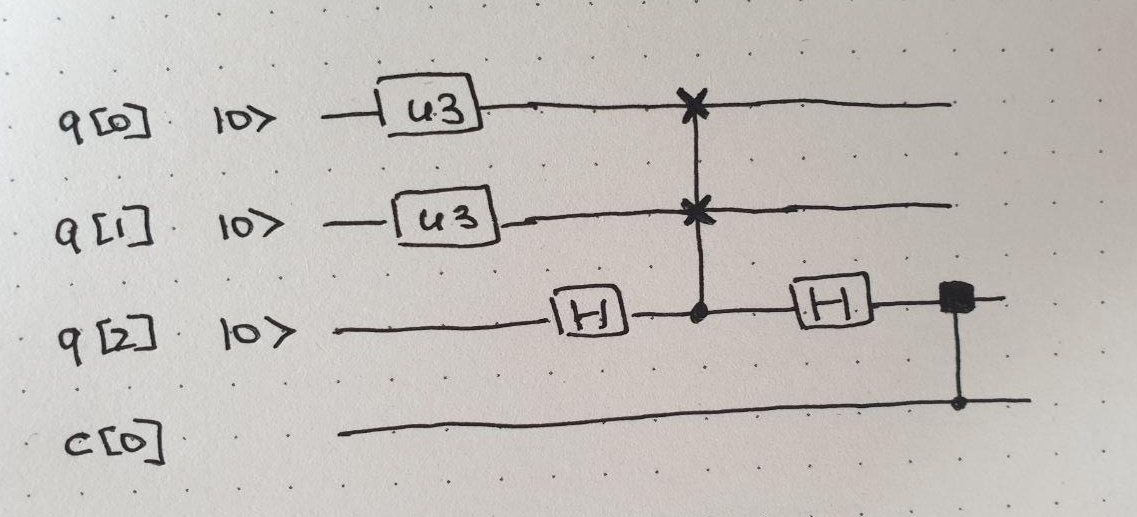 q[0] |0> u3
q[1] |0> u3
q[2] |0> H H
c[0]